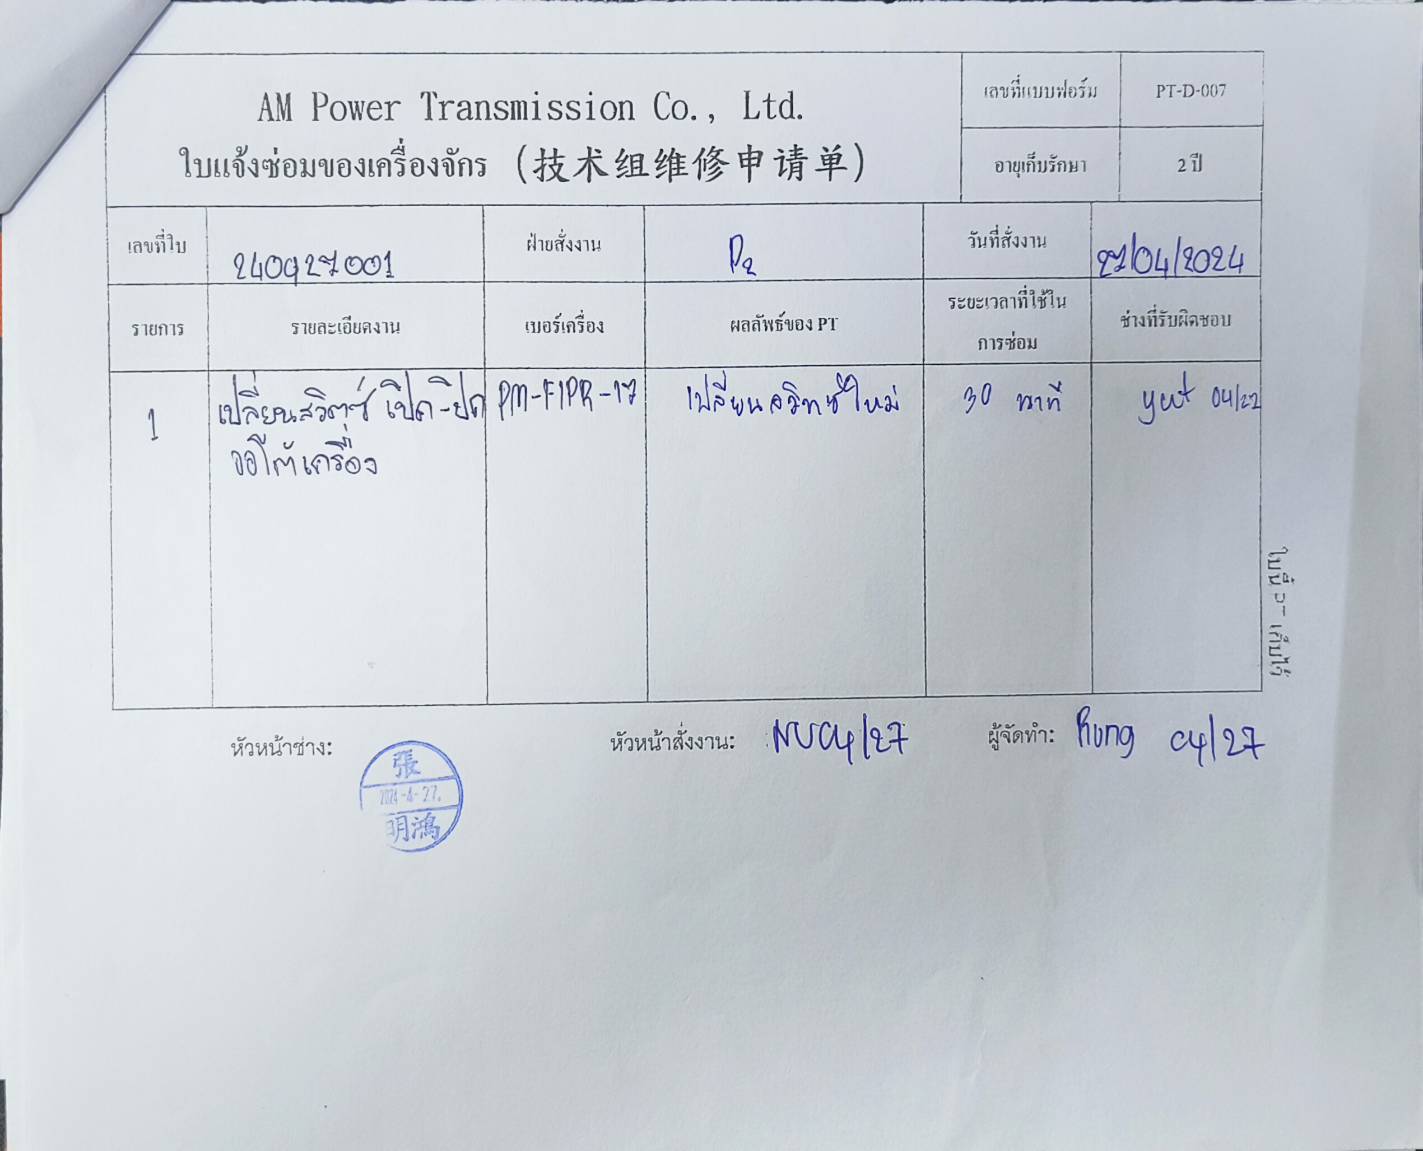 AM Power Transmission Co., Ltd.
ใบแจ้งซ่อมของเครื่องจักร (技术组维修申请单)
เลขที่แบบฟอร์ม PT-D-007
อายุเก็บรักษา 2 ปี
เลขที่ใบ 240427001 ฝ่ายสั่งงาน P2 วันที่สั่งงาน 27/04/2024
รายการ รายละเอียดงาน เบอร์เครื่อง ผลลัพธ์ของ PT ระยะเวลาที่ใช้ใน ช่างที่รับผิดชอบ
การซ่อม
1 เปลี่ยนสวิตซ์ เปิด-ปิด PM-FIPR-17 เปลี่ยนสวิทซ์ใหม่ 30 นาที 04/27
ออโต้เครื่อง
หัวหน้าช่าง: หัวหน้าสั่งงาน: NU04/27 ผู้จัดทำ: Rung 04/27
張
2024-4-27.
明鴻